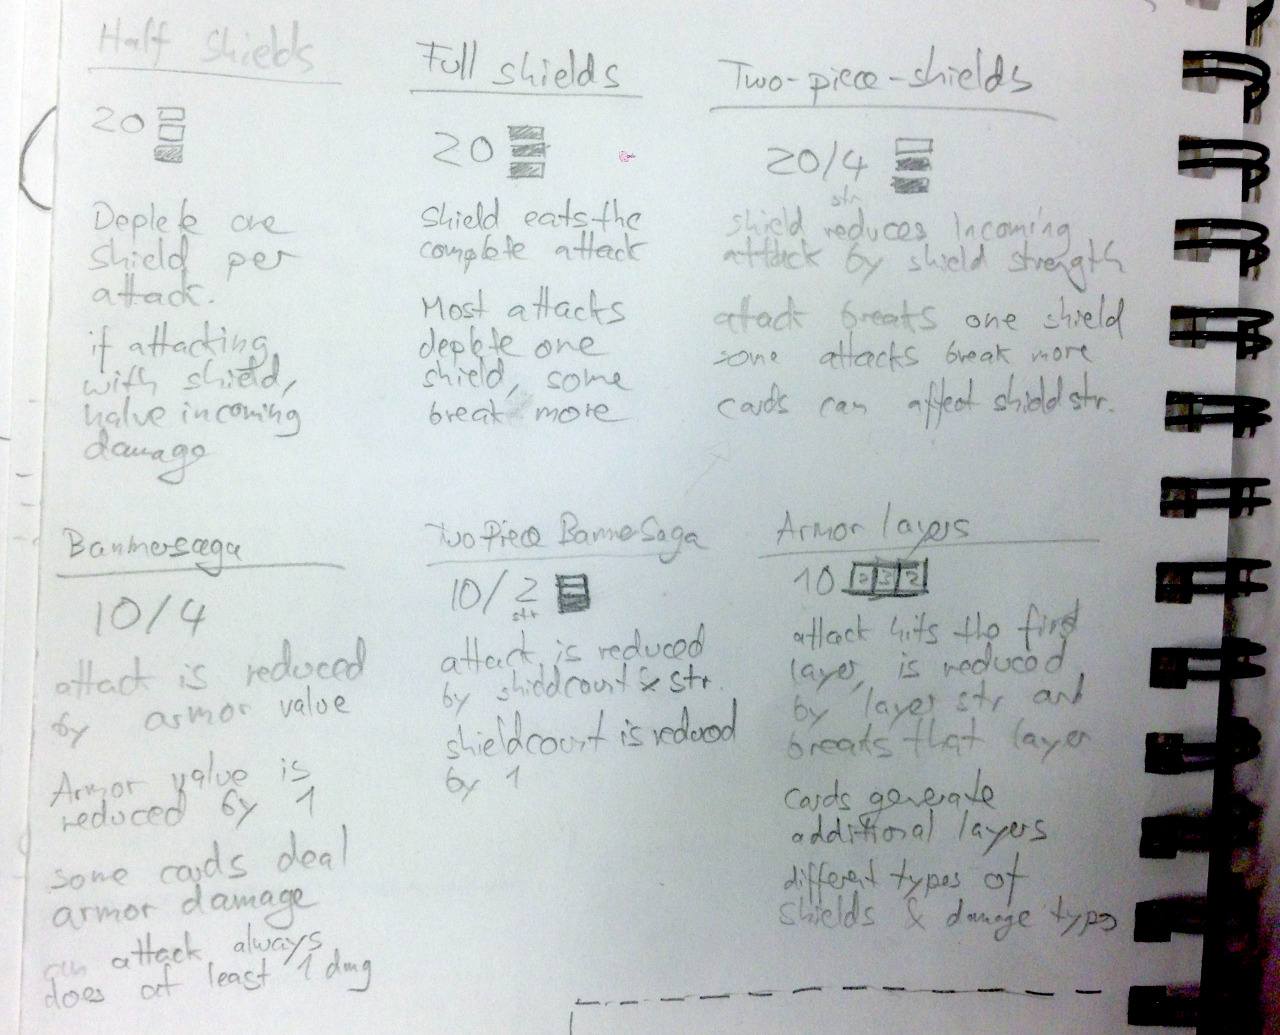 Half shields
20
Deplete one
shield per
attack.
if attacking
with shield,
halve incoming
damage
Full shields
20
shield eats the
complete attack
Most attacks
deplete one
shield, some
break more
Two-piece-shields
20/4
str
shield reduces incoming
attack by shield strength
attack breaks one shield
some attacks break more
cards can affect shield str.
Bannersaga
10/4
attack is reduced
by armor value
Armor value is
reduced by 1
some cards deal
armor damage
an attack always
does at least 1 dmg
Two Piece BannerSaga
10/2
str
attack is reduced
by shieldcount & str.
shieldcount is reduced
by 1
Armor layers
10 2 3 2
attack hits the first
layer, is reduced
by layer str and
breaks that layer
cards generate
additional layers
different types of
shields & damage types